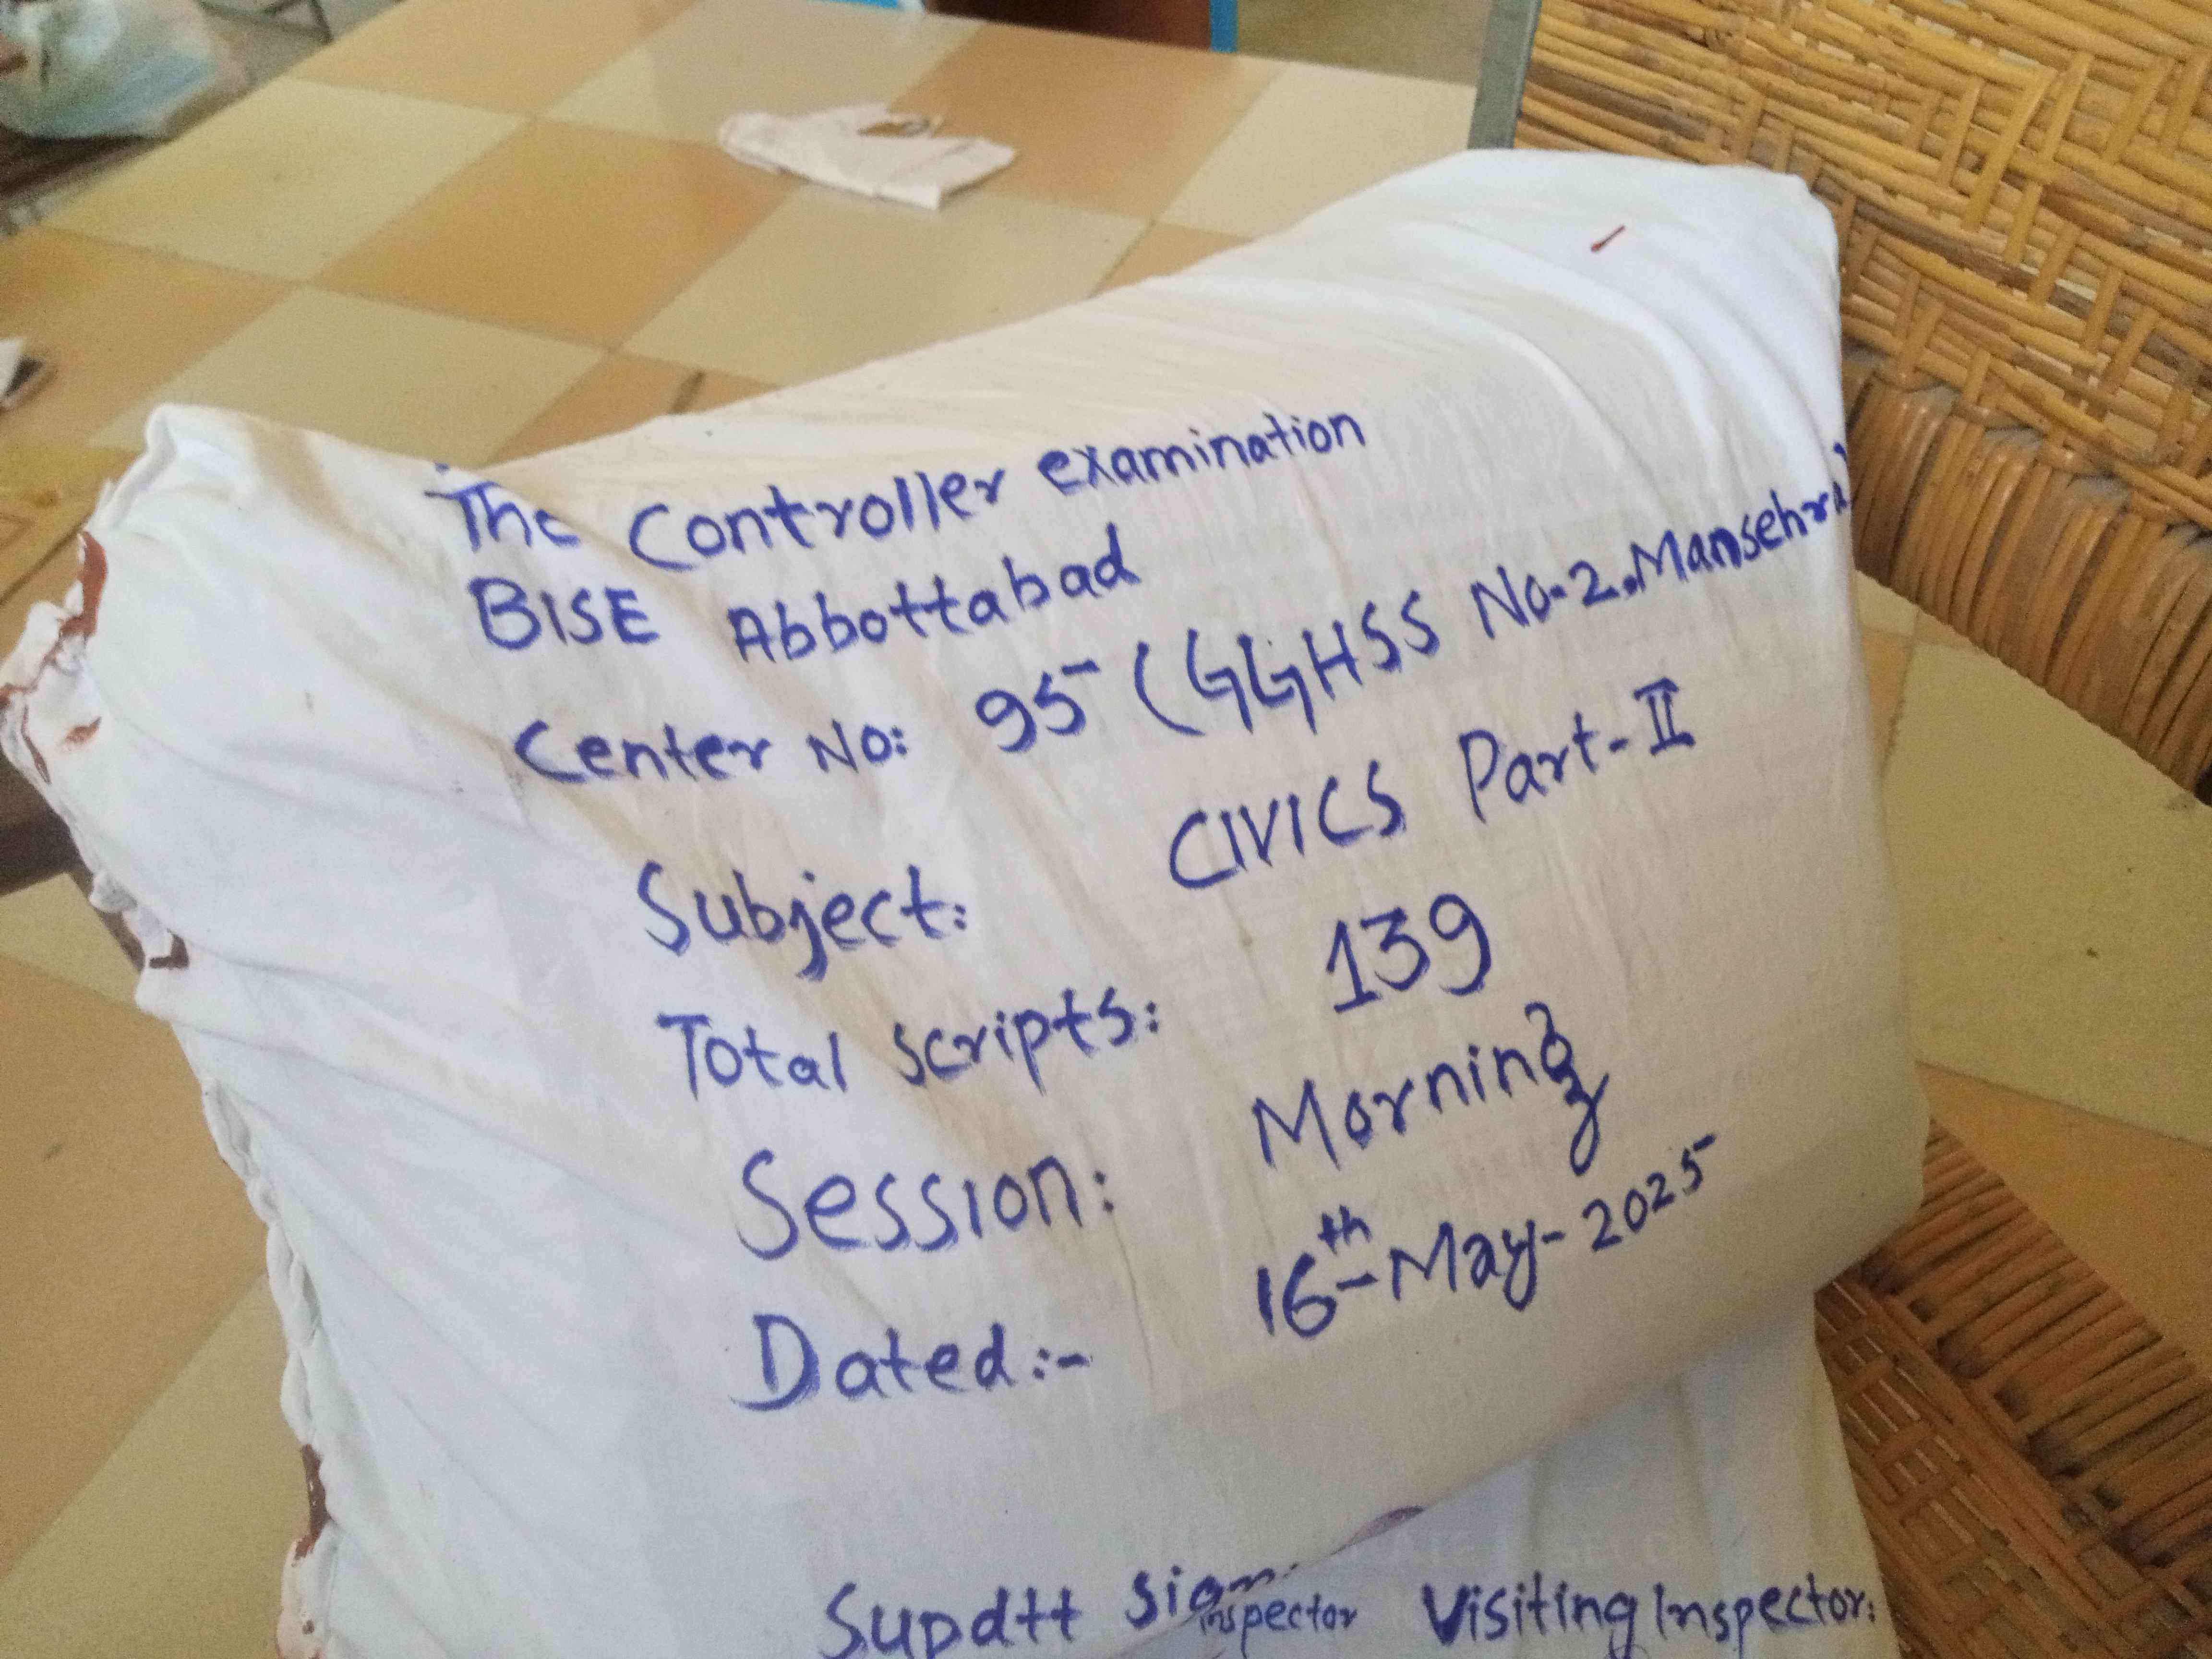 The Controller examination
BISE Abbottabad
Center No: 95 (GGHSS No.2. Mansehra)
Subject: CIVICS Part-II
Total Scripts: 139
Session: Morning
Dated:- 16th-May-2025
Supdtt inspector Visiting Inspector: